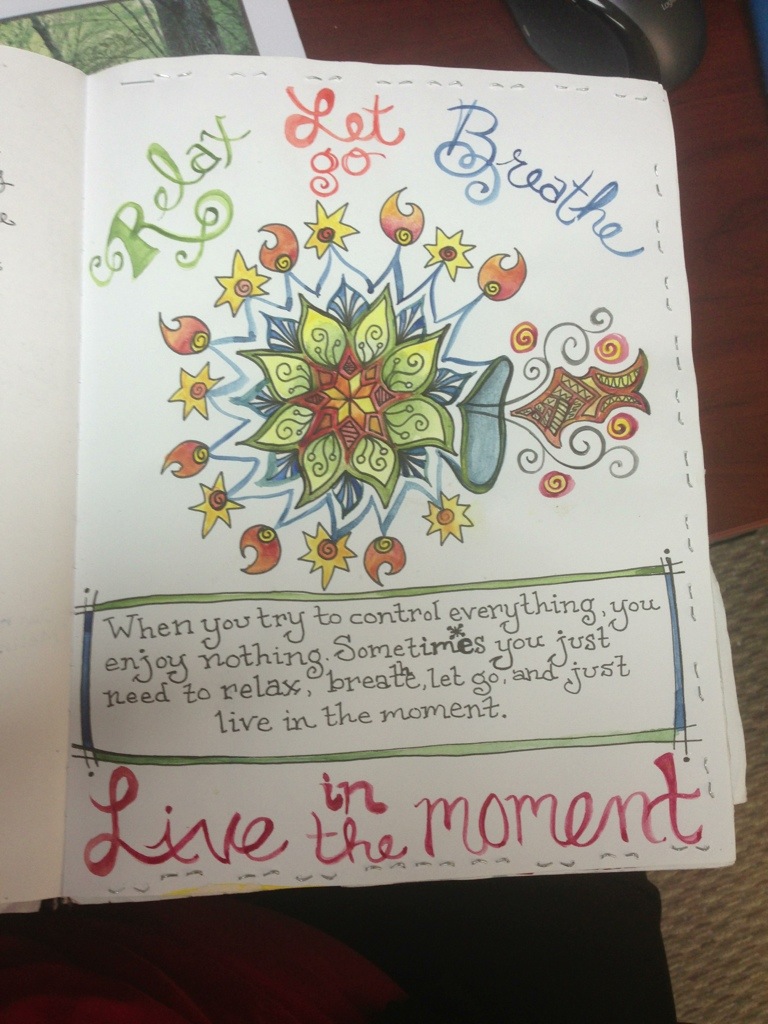 Relax
Let
go
Breathe
When you try to control everything, you
enjoy nothing. Sometimes you just
need to relax, breath, let go, and just
live in the moment.
Live in the moment